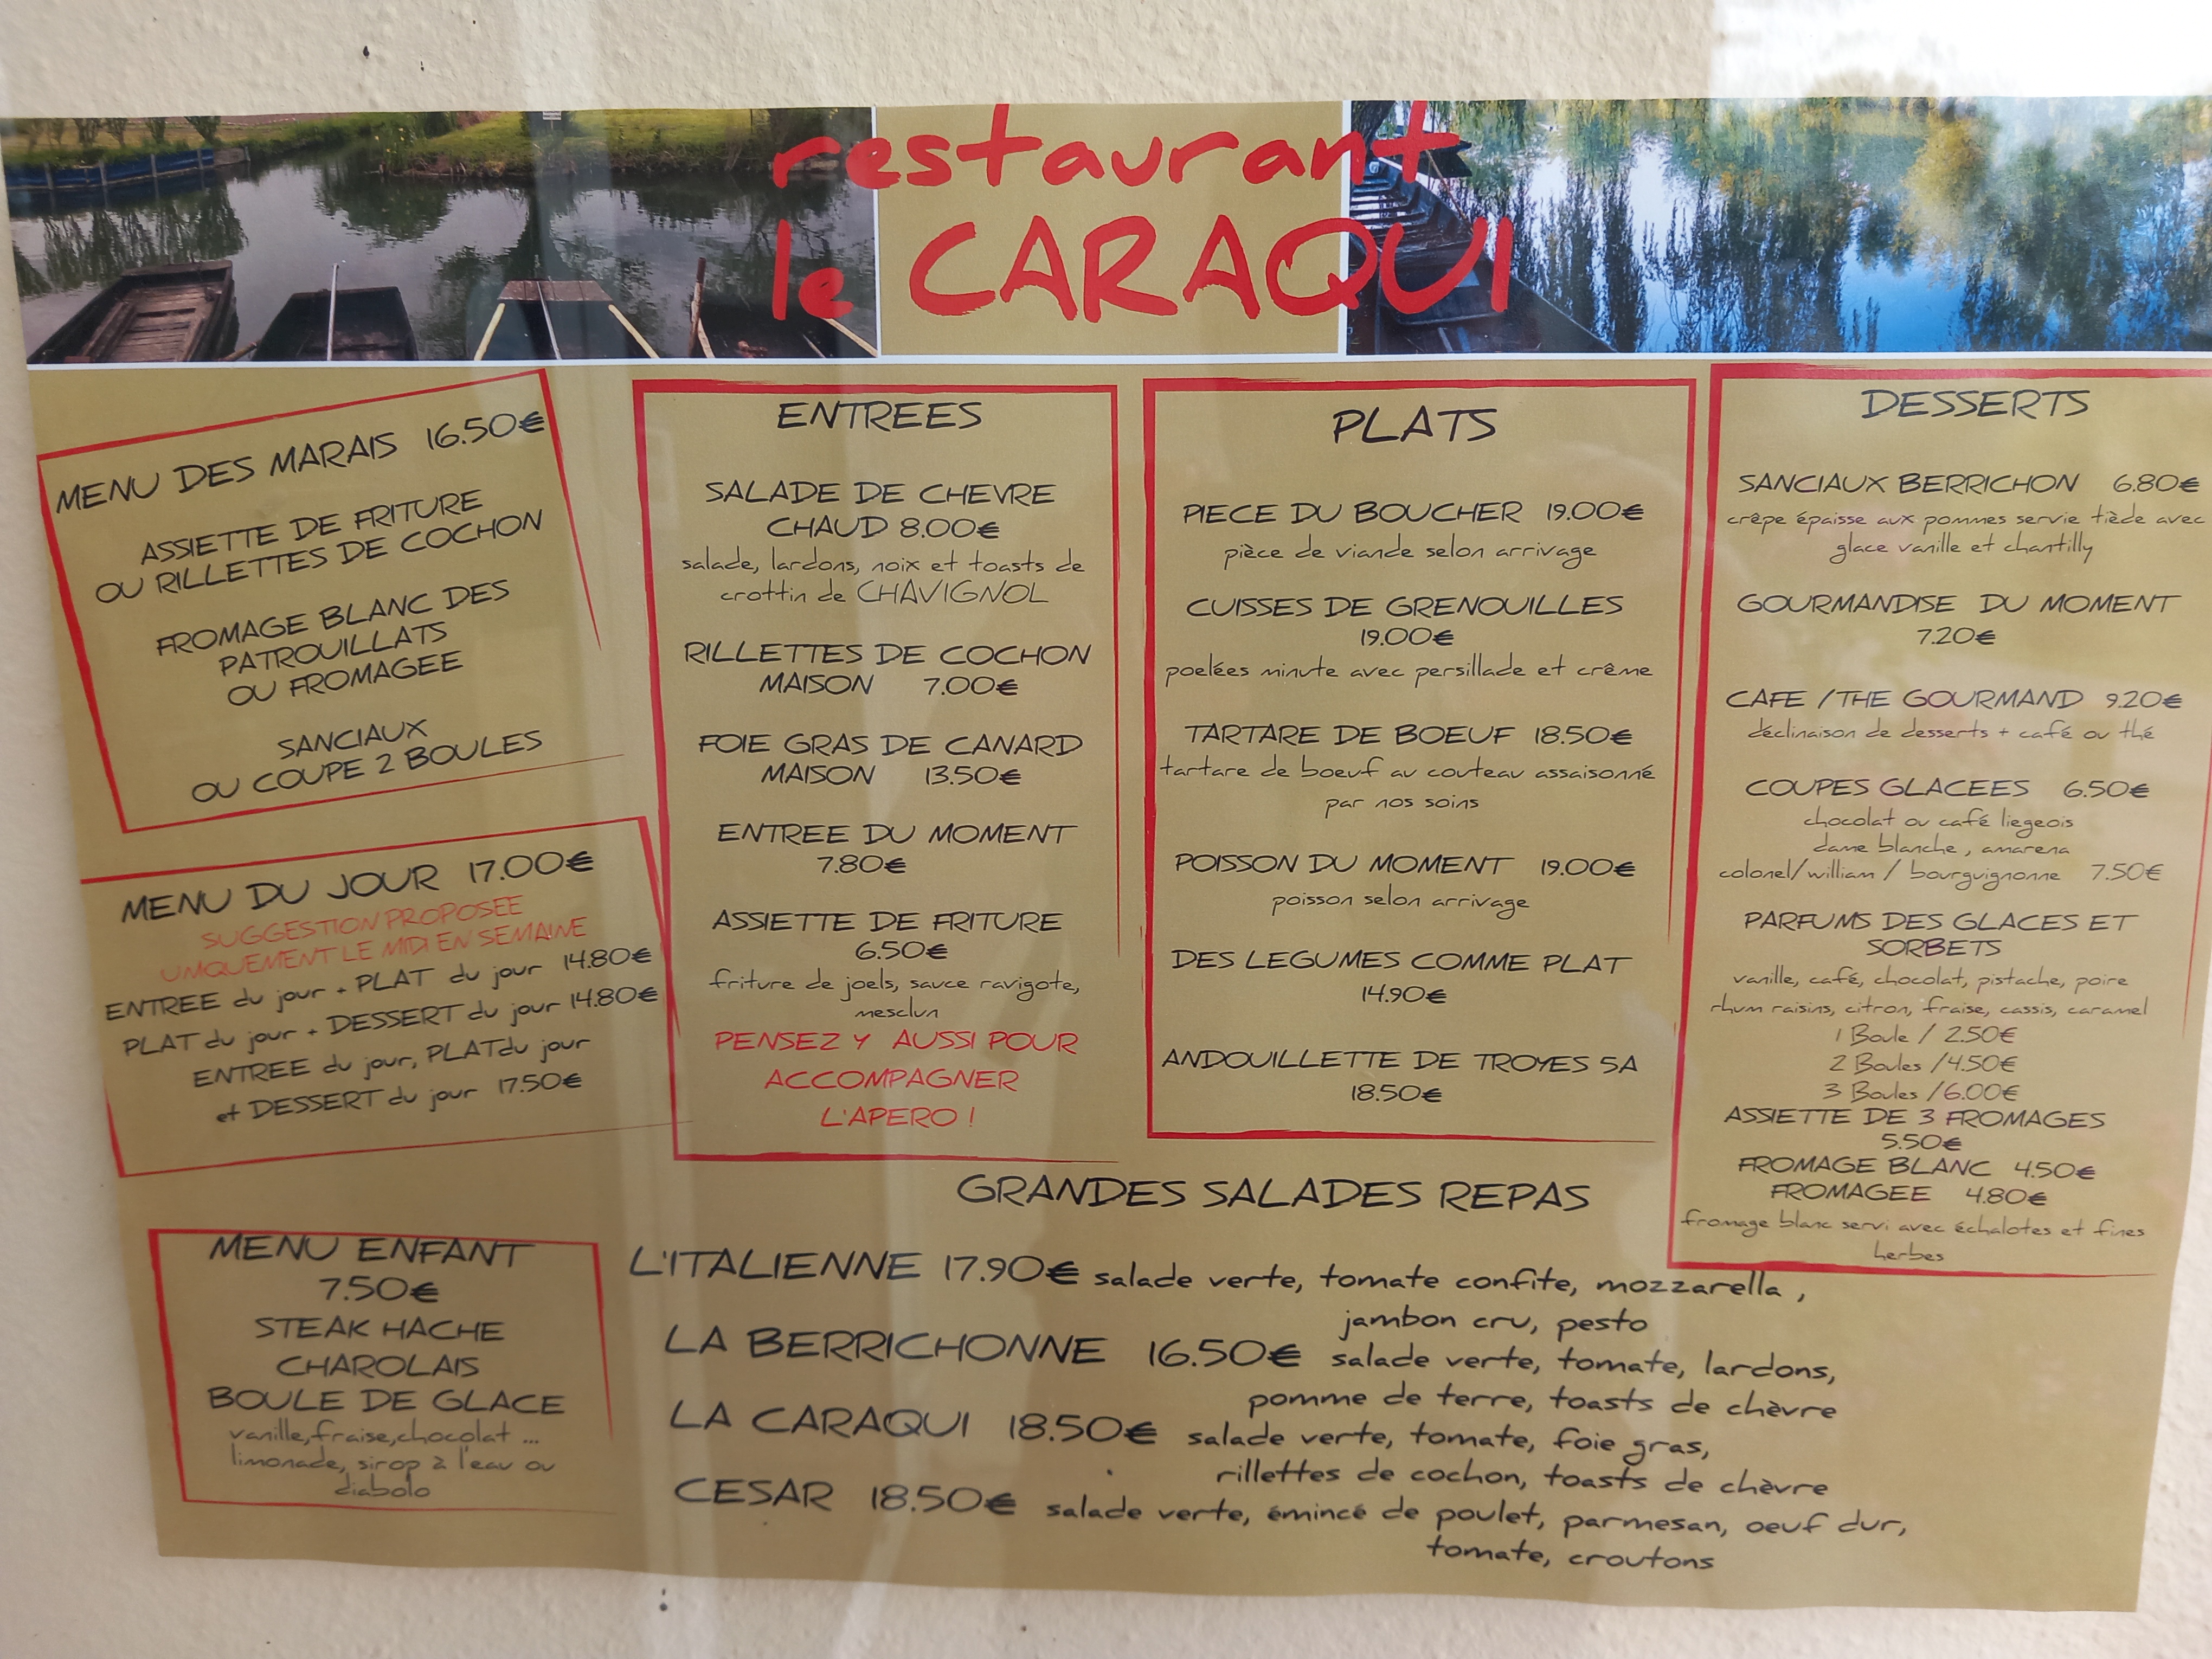 restaurant
le CARAQUI
MENU DES MARAIS 16.50€
ASSIETTE DE FRITURE
OU RILLETTES DE COCHON
FROMAGE BLANC DES
PATROUILLATS
OU FROMAGEE
SANCIAUX
OU COUPE 2 BOULES
MENU DU JOUR 17.00€
SUGGESTION PROPOSEE
UNIQUEMENT LE MIDI EN SEMAINE
ENTREE du jour + PLAT du jour 14.80€
PLAT du jour + DESSERT du jour 14.80€
ENTREE du jour, PLATdu jour
et DESSERT du jour 17.50€
MENU ENFANT
7.50€
STEAK HACHE
CHAROLAIS
BOULE DE GLACE
vanille,fraise,chocolat ...
limonade, sirop à l'eau ou
diabolo
ENTREES
SALADE DE CHEVRE
CHAUD 8.00€
salade, lardons, noix et toasts de
crottin de CHAVIGNOL
RILLETTES DE COCHON
MAISON 7.00€
FOIE GRAS DE CANARD
MAISON 13.50€
ENTREE DU MOMENT
7.80€
ASSIETTE DE FRITURE
6.50€
friture de joels, sauce ravigote,
mesclun
PENSEZ Y AUSSI POUR
ACCOMPAGNER
L'APERO !
PLATS
PIECE DU BOUCHER 19.00€
pièce de viande selon arrivage
CUISSES DE GRENOUILLES
19.00€
poelées minute avec persillade et crême
TARTARE DE BOEUF 18.50€
tartare de boeuf au couteau assaisonné
par nos soins
POISSON DU MOMENT 19.00€
poisson selon arrivage
DES LEGUMES COMME PLAT
14.90€
ANDOUILLETTE DE TROYES 5A
18.50€
DESSERTS
SANCIAUX BERRICHON 6.80€
crêpe épaisse aux pommes servie tiède avec
glace vanille et chantilly
GOURMANDISE DU MOMENT
7.20€
CAFE /THE GOURMAND 9.20€
déclinaison de desserts + café ou thé
COUPES GLACEES 6.50€
chocolat ou café liegeois
dame blanche , amarena
colonel/william / bourguignonne 7.50€
PARFUMS DES GLACES ET
SORBETS
vanille, café, chocolat, pistache, poire
rhum raisins, citron, fraise, cassis, caramel
1 Boule / 2.50€
2 Boules /4.50€
3 Boules /6.00€
ASSIETTE DE 3 FROMAGES
5.50€
FROMAGE BLANC 4.50€
FROMAGEE 4.80€
fromage blanc servi avec échalotes et fines
herbes
GRANDES SALADES REPAS
L'ITALIENNE 17.90€ salade verte, tomate confite, mozzarella ,
jambon cru, pesto
LA BERRICHONNE 16.50€ salade verte, tomate, lardons,
pomme de terre, toasts de chèvre
LA CARAQUI 18.50€ salade verte, tomate, foie gras,
rillettes de cochon, toasts de chèvre
CESAR 18.50€ salade verte, émincé de poulet, parmesan, oeuf dur,
tomate, croutons